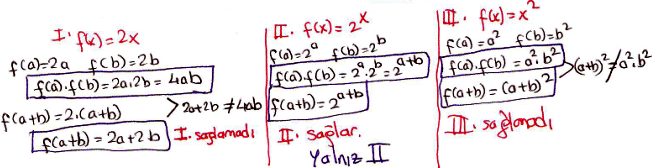 I. f(x)=2x
f(a)=2a f(b)=2b
f(a).f(b)=2a.2b=4ab
f(a+b)=2.(a+b)
2a+2b≠4ab
f(a+b)=2a+2b
I. sağlamadı
II. f(x)=2^x
f(a)=2^a f(b)=2^b
f(a).f(b)=2^a.2^b=2^{a+b}
f(a+b)=2^{a+b}
II. sağlar.
Yalnız II
III. f(x)=x^2
f(a)=a^2 f(b)=b^2
f(a).f(b)=a^2.b^2
f(a+b)=(a+b)^2
(a+b)^2≠a^2.b^2
III. sağlamadı